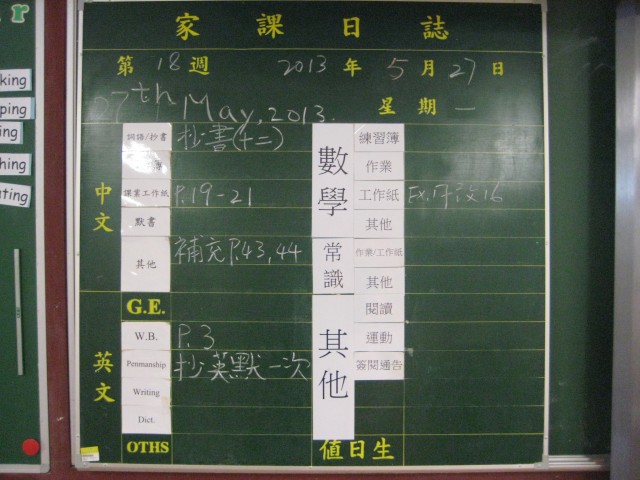 家課日誌
第18週 2013年5月27日
27th May, 2013. 星期一
中文
詞語/抄書 抄書(十二)
課業工作紙 P.19-21
默書
其他 補充P.43,44
英文
G.E.
W.B. P.3
Penmanship 抄英默一次
Writing
Dict.
OTHS
數學
練習簿
作業
工作紙
其他
常識
作業/工作紙
其他
其他
閱讀
運動
簽閱通告
值日生
king
ping
ing
hing
ating